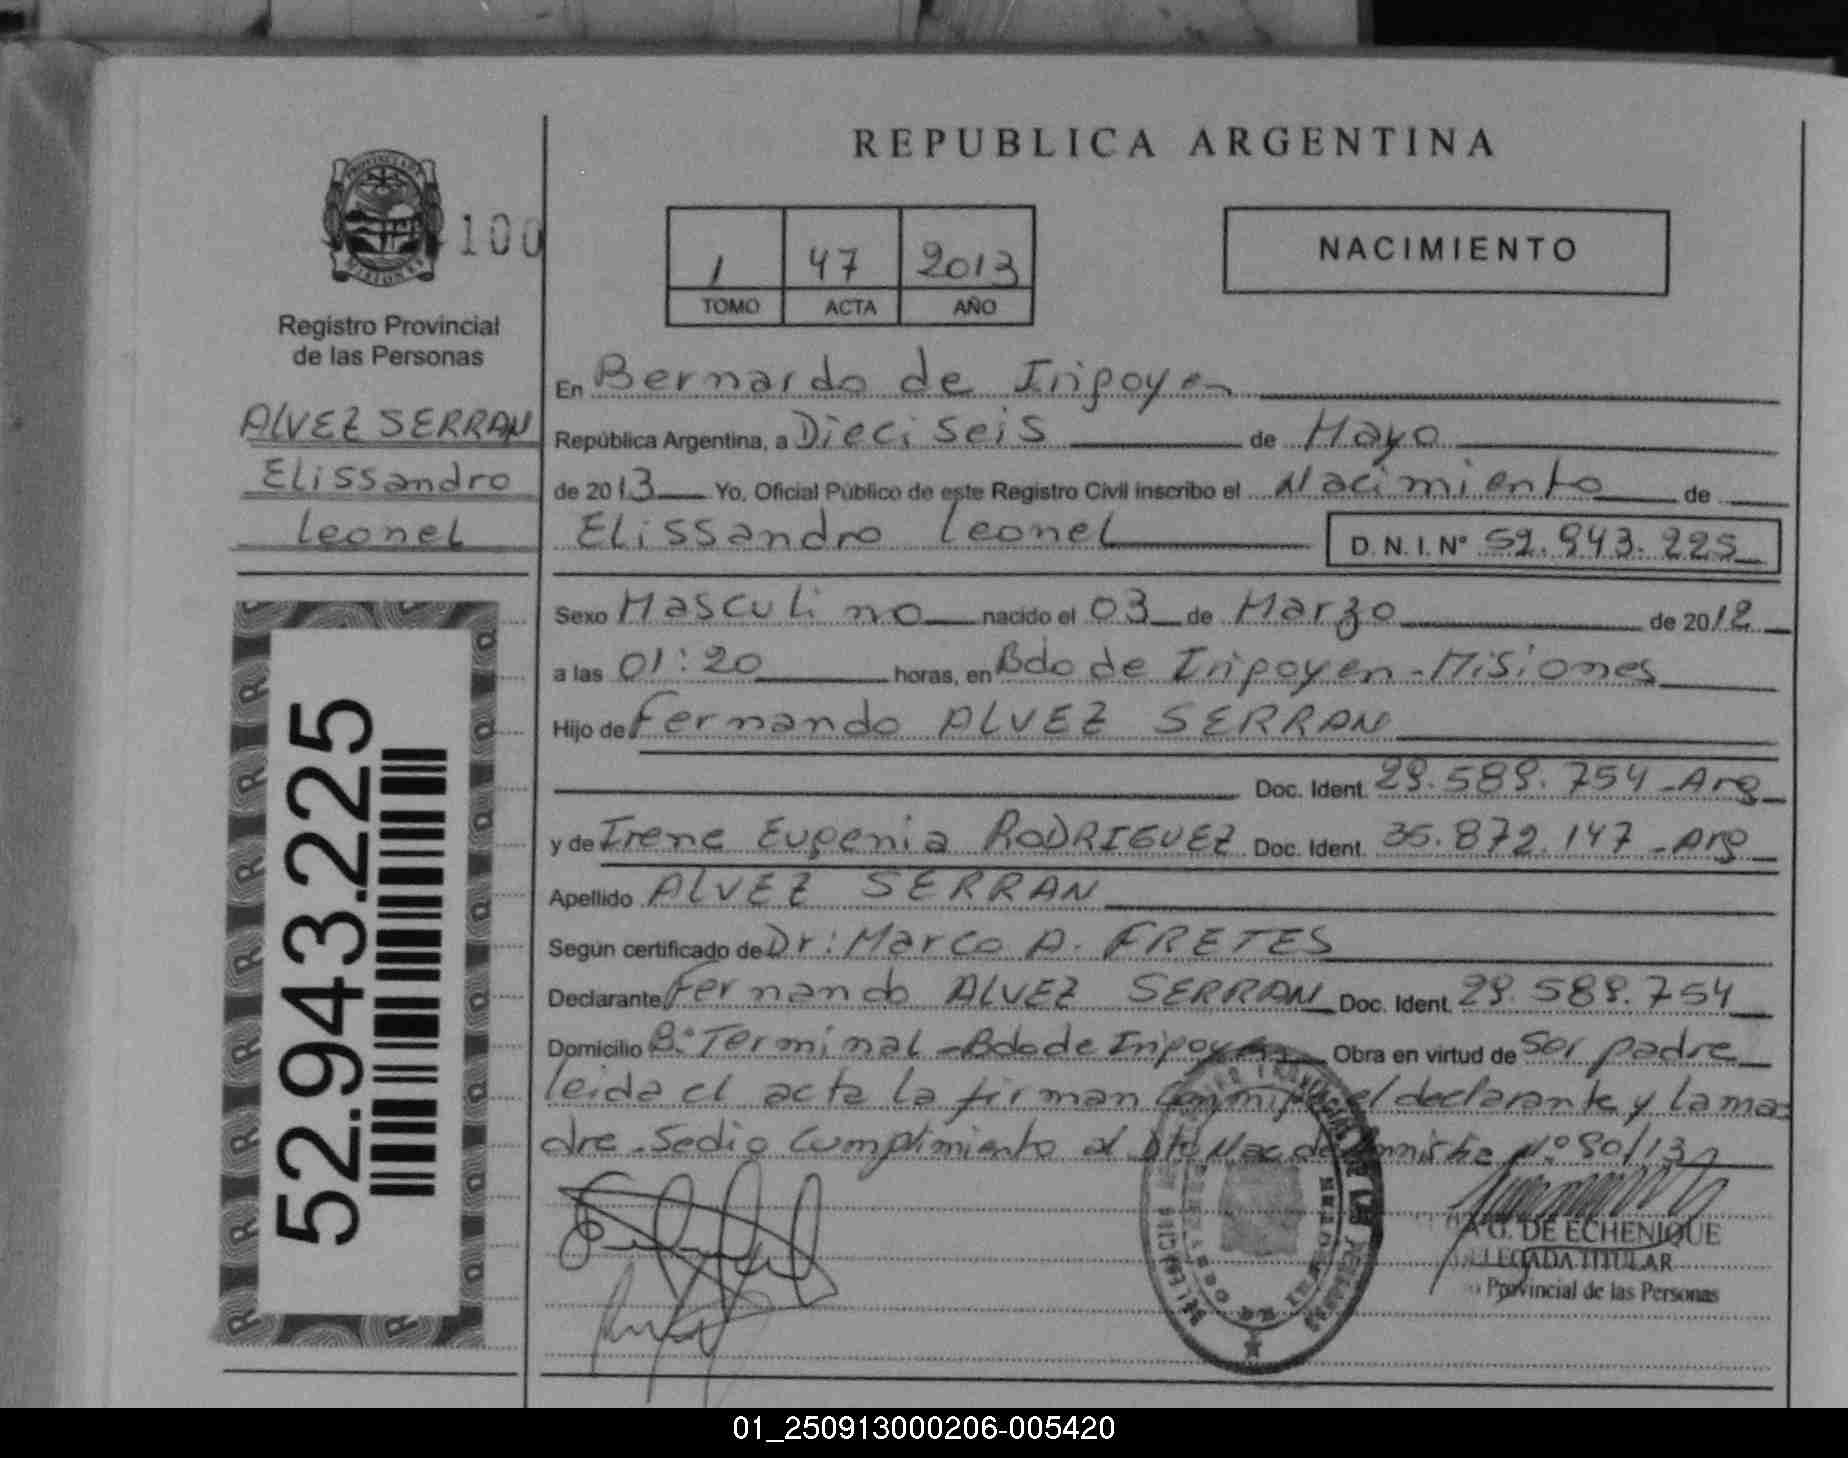 REPUBLICA ARGENTINA
100
1 47 2013
TOMO ACTA AÑO
NACIMIENTO
Registro Provincial
de las Personas
ALVEZ SERRAN
Elissandro
Leonel
52.943.225
En Bernardo de Iripoyen
República Argentina, a Dieci seis de Mayo
de 2013 Yo, Oficial Público de este Registro Civil inscribo el Nacimiento de
Elissandro Leonel D.N.I.Nº 52.943.225
Sexo Masculino nacido el 03 de Marzo de 2012
a las 01:20 horas, en Bdo de Iripoyen - Misiones
Hijo de Fernando ALVEZ SERRAN
Doc. Ident. 29.589.754 - Arg
y de Irene Eugenia RODRIGUEZ Doc. Ident. 35.872.147 - Arg
Apellido ALVEZ SERRAN
Según certificado de Dr: Marco A. FRETES
Declarante Fernando ALVEZ SERRAN Doc. Ident. 29.589.754
Domicilio Bº Terminal - Bdo de Iripoyen Obra en virtud de ser padre
leida el acta la firman conmigo el declarante y la ma
dre. Se dio cumplimiento al Dto Nac de Nº 90/13
G. DE ECHENIQUE
DELEGADA TITULAR
Provincial de las Personas
01_250913000206-005420